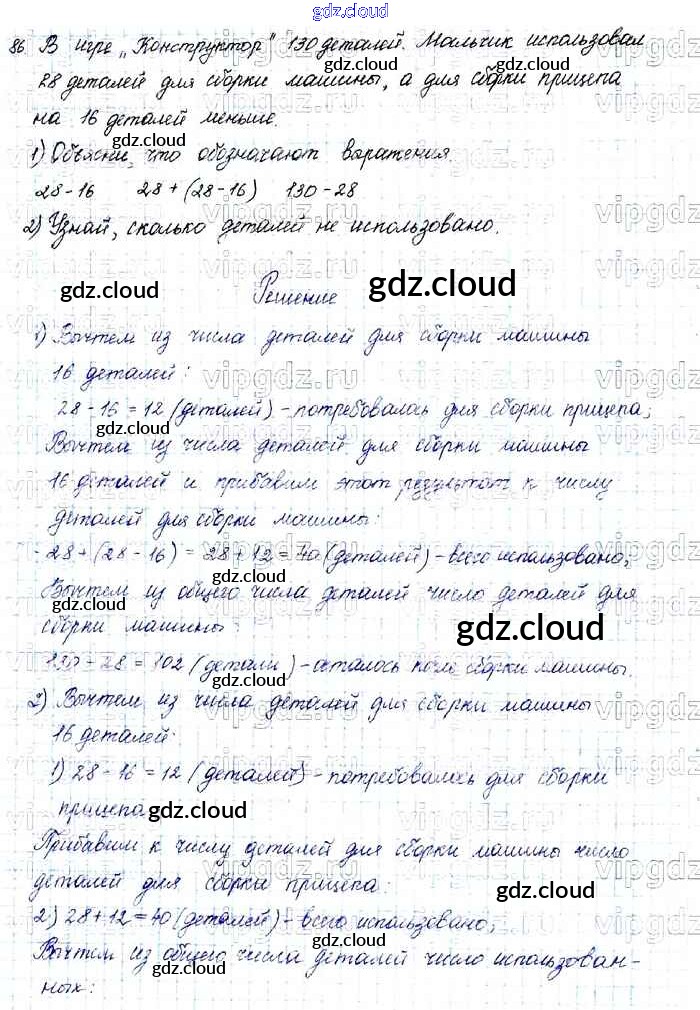 gdz.cloud
86 В игре „Конструктор" 130 деталей. Мальчик использовал
28 деталей для сборки машины, а для сборки прицепа
на 16 деталей меньше.
gdz.cloud
1) Объясни, что обозначают выражения.
28-16 28+(28-16) 130-28
2) Узнай, сколько деталей не использовано.
gdz.cloud Решение gdz.cloud
1) Вычтем из числа деталей для сборки машины
16 деталей:
28-16=12 (деталей) - потребовалось для сборки прицепа;
gdz.cloud
Вычтем из числа деталей для сборки машины
16 деталей и прибавим этот результат к числу
деталей для сборки машины:
28+(28-16)=28+12=40 (деталей) - всего использовано;
gdz.cloud
Вычтем из общего числа деталей число деталей для
gdz.cloud
сборки машины:
gdz.cloud
130-28=102 (детали) - осталось после сборки машины.
gdz.cloud
2) Вычтем из числа деталей для сборки машины
16 деталей:
1) 28-16=12 (деталей) - потребовалось для сборки
прицепа
gdz.cloud
Прибавим к числу деталей для сборки машины число
деталей для сборки прицепа:
gdz.cloud
2) 28+12=40 (деталей) - всего использовано;
Вычтем из общего числа деталей число использован-
gdz.cloud
ных:
vipgdz.ru